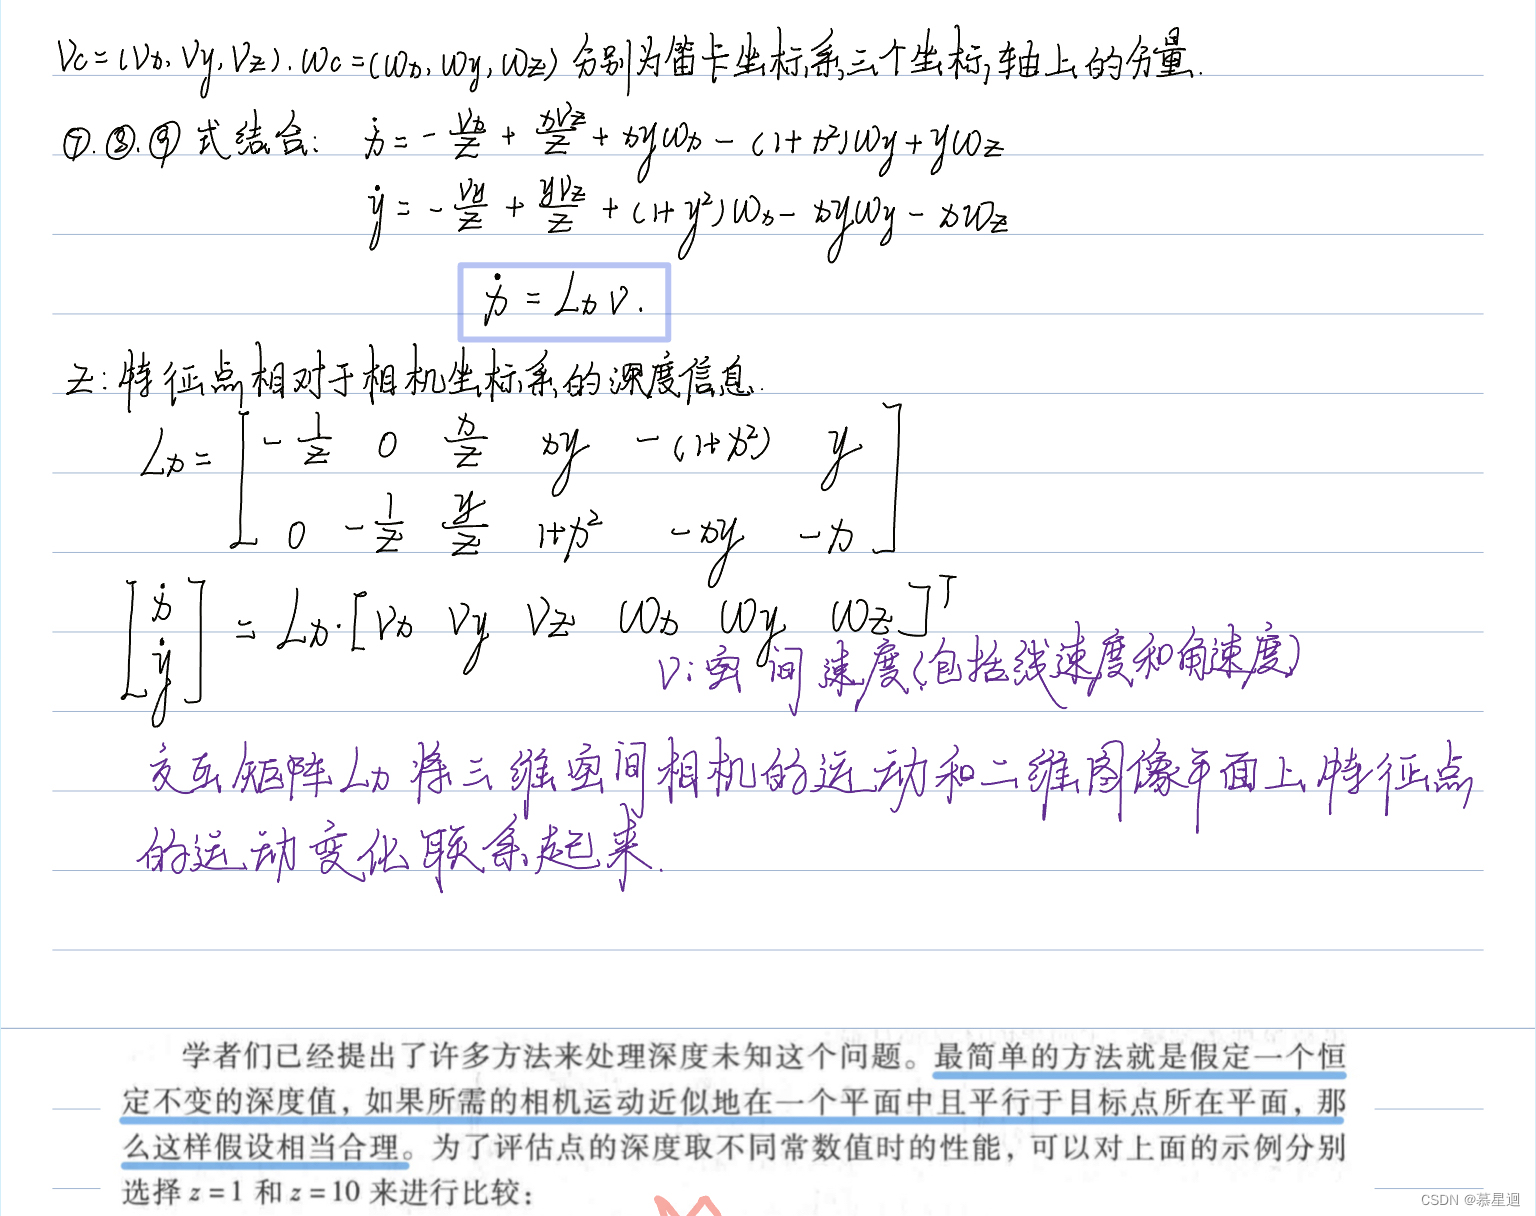 Vc=(Vx,Vy,Vz).Wc=(Wx,Wy,Wz)分别为笛卡坐标系三个坐标轴上的分量.
⑦.⑧.⑨式结合: ẋ=-Vx/Z+xVz/Z+xyWx-(1+x²)Wy+yWz
ẏ=-Vy/Z+yVz/Z+(1+y²)Wx-xyWy-xWz
ẋ=LxV.
Z:特征点相对于相机坐标系的深度信息.
Lx=[-1/Z 0 x/Z xy -(1+x²) y
0 -1/Z y/Z 1+x² -xy -x]
[ẋ ẏ]=Lx·[Vx Vy Vz Wx Wy Wz]ᵀ
V:空间速度(包括线速度和角速度)
交互矩阵Lx将三维空间相机的运动和二维图像平面上特征点
的运动变化联系起来.
学者们已经提出了许多方法来处理深度未知这个问题。最简单的方法就是假定一个恒
定不变的深度值，如果所需的相机运动近似地在一个平面中且平行于目标点所在平面，那
么这样假设相当合理。为了评估点的深度取不同常数值时的性能，可以对上面的示例分别
选择z=1和z=10来进行比较：
CSDN @慕星迴